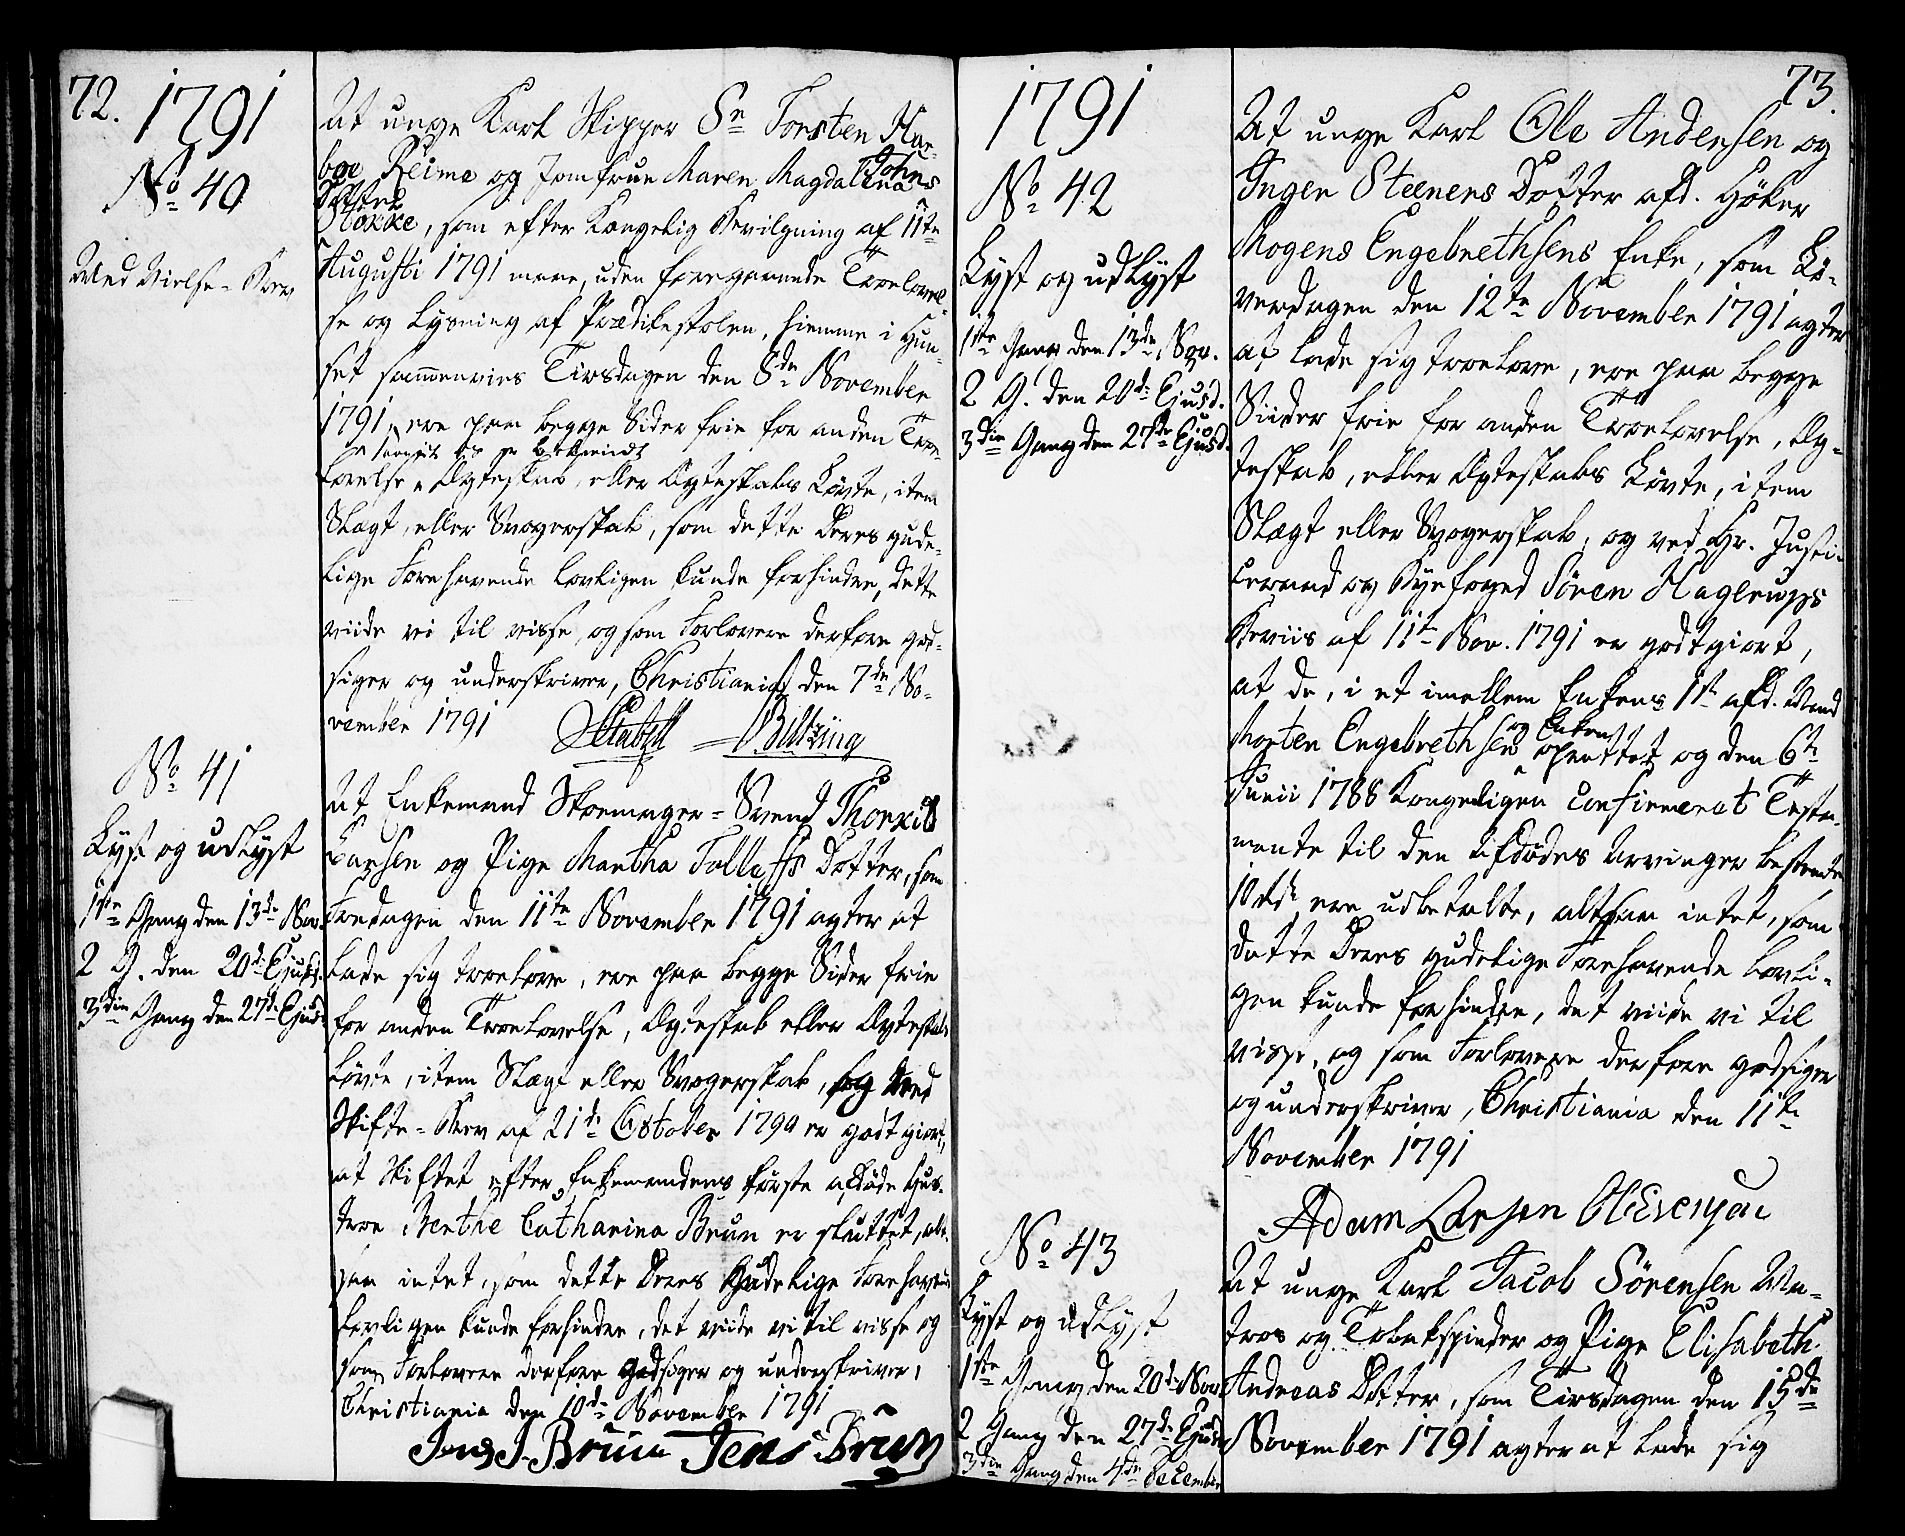 72. 1791
No 40
Med Vielse-Brev
At unge Karl Skipper Sr Torsten Har-
boe Reime og Jomfrue Maren Magdalena Johns
Datter
Stokke, som efter Kongelig Bevilgning af 11te
Augusti 1791 maae, uden foregaaende Troelovel-
se og Lysning af Prædikestolen, hiemme i Huu-
set sammenvies Tirsdagen den 8de November
1791, ere paa begge Sider frie for anden Troe-
saavit os er bekiendt
lovelse, Ægteskab, eller Ægteskabs Løvte, item
Slægt, eller Svogerskab, som dette Deres gude-
lige Forehavende lovligen kunde forhindre, dette
viide vi til visse, og som Forlovere derfore god-
siger og underskriver, Christiania den 7de No-
vember 1791
Biltzing
No 41
Lyst og udlyst
1ste Gang den 13de Nov.
2 G. den 20de Ejusd.
3die Gang den 27de Ejusd.
At Enkemand Skoemager-Svend Thorkil
Larsen og Pige Martha Tollefs Dotter, som
Fredagen den 11te November 1791 agter at
lade sig troelove, ere paa begge Sider frie
for anden Troelovelse, Ægteskab eller Ægteskabs
Løvte, item Slægt eller Svogerskab, og ved
Skifte-Brev af 21de October 1790 er godtgiort,
at Skiftet efter Enkemandens første afdøde Hus-
troe Berthe Catharina Brun er sluttet, alt-
saa intet, som dette Deres Gudelige Forehavende
lovligen kunde forhindre, det viide vi til visse og
som Forlovere derfore godsiger og underskriver,
Christiania den 10de November 1791
Jens J. Bruun Jens Brun
73.
1791
No 42
Lyst og udlyst
1ste Gang den 13de Nov.
2 G. den 20de Ejusd.
3die Gang den 27de Ejusd.
At unge Karl Ole Andersen og
Inger Steeners Dotter afd. Høker
Mogens Engebrethsens Enke, som Lø-
verdagen den 12te November 1791 agter
at lade sig troelove, ere paa begge
Siider frie for anden Troelovelse, Æg-
teskab, eller Ægteskabs Løvte, item
Slægt eller Svogerskab, og ved Hr. Justi-
ceraad og Byefoged Sören Hagerups
Beviis af 11te Nov. 1791 er godtgiort,
at de, i et imellem Enkens 1ste afd. Mand
Morten Engebrethsen og Enken oprettet og den 6te
Junii 1788 Kongeligen Confirmerat Testa-
mente til den Afdødes Arvinger bestemte
10 rdr ere udbetalte, altsaa intet, som
dette Deres gudelige Forehavende lovli-
gen kunde forhindre, det viide vi til
visse, og som Forlovere derfore godsiger
og underskriver, Christiania den 11te
November 1791
Adam Larsen Ole Evensen
No 43
Lyst og udlyst
1ste Gang den 20de Nov.
2 Gang den 27de Ejusd.
3die Gang den 4de December
At unge Karl Jacob Sörensen Ma-
tros og Tobakspinder og Pige Elisabeth
Andreas Dotter, som Tirsdagen den 15de
November 1791 agter at lade sig